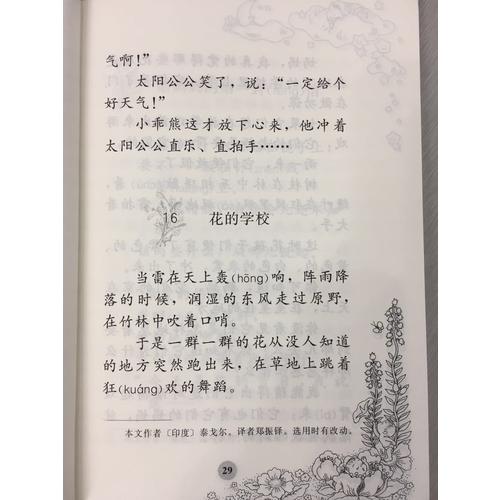 气啊！”
太阳公公笑了，说：“一定给个
好天气！”
小乖熊这才放下心来，他冲着
太阳公公直乐、直拍手……
16 花的学校
当雷在天上轰(hōng)响，阵雨降
落的时候，润湿的东风走过原野，
在竹林中吹着口哨。
于是一群一群的花从没人知道
的地方突然跑出来，在草地上跳着
狂(kuáng)欢的舞蹈。
本文作者〔印度〕泰戈尔。译者郑振铎。选用时有改动。
29